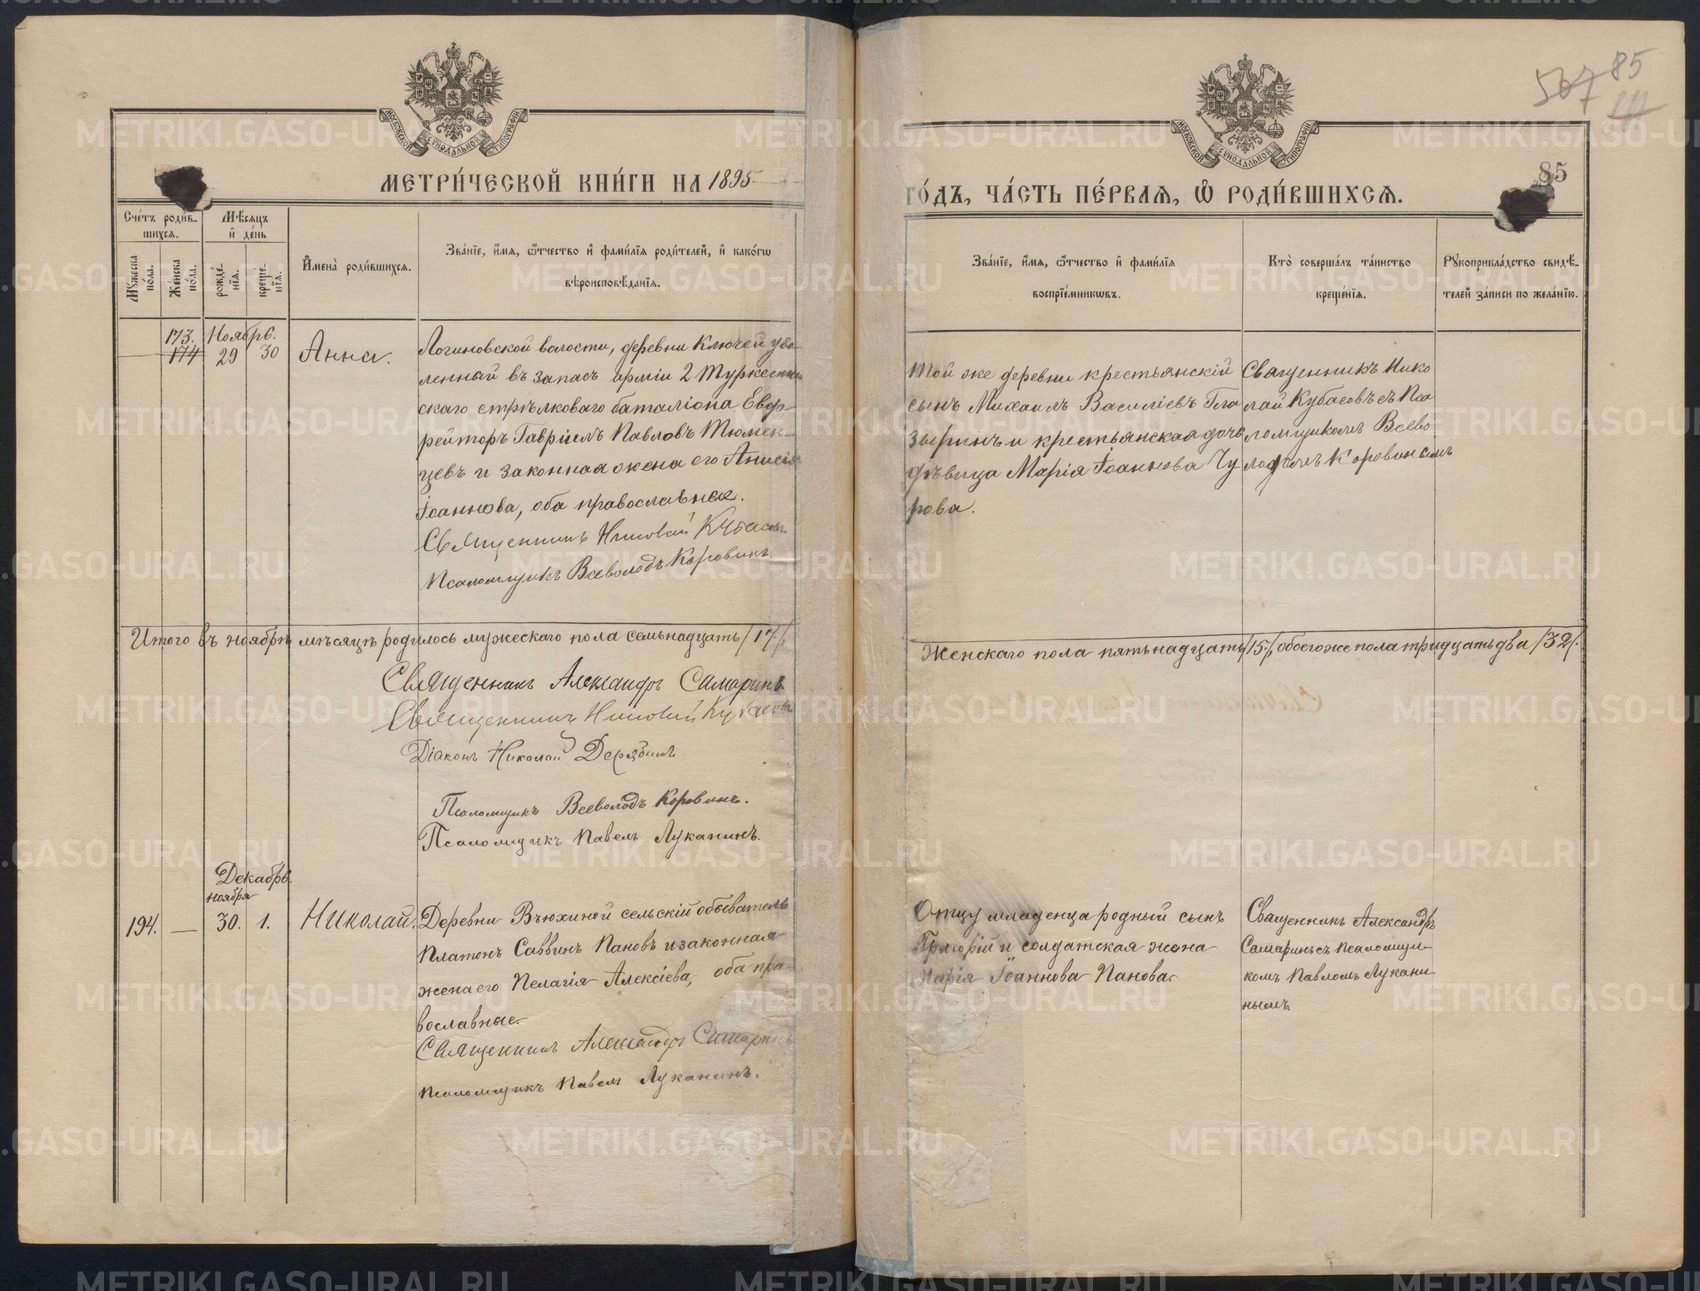 567 85
85
МЕТРИ́ЧЕСКОЙ КНИ́ГИ НА 1895
ГО́ДЪ, ЧА́СТЬ ПЕ́РВАЯ, Ѽ РОДИ́ВШИХСЯ.
Сче́тъ роди́в-
шихся.
Мѣ́сяцъ
и҆ де́нь
Мꙋ́жеска по́ла.
Же́нска по́ла.
рожде́-
нїя.
креще́-
нїя.
И҆мена̀ роди́вшихся.
Зва́нїе, и҆́мя, ѻ҆́тчество и҆ фами́лїя роди́телей, и҆ како́гѡ
вѣроисповѣ́данїя.
Зва́нїе, и҆́мя, ѻ҆́тчество и҆ фами́лїя
воспрїе́мникѡвъ.
Кто̀ соверша́лъ та́инство
креще́нїя.
Рꙋкоприкла́дство свидѣ́-
телей за́писи по жела́нїю.
173. Ноябрь.
174 29 30 Анна.
Логиновской волости, деревни Ключей уво-
ленный въ запасъ арміи 2 Туркестан
скаго стрѣлковаго баталіона Евор-
рейторъ Гавріилъ Павловъ Тюмен-
цевъ и законная жена его Анисія
Іоаннова, оба православные.
Священникъ Николай Кубасовъ
Псаломщикъ Всеволодъ Коровинъ.
Той же деревни крестьянскій
сынъ Михаилъ Василіевъ Гла
зыринъ и крестьянская дочь
дѣвица Марія Іоаннова Чу
рова.
Священникъ Нико
лай Кубасовъ съ Пса
ломщикомъ Всево
лодомъ Коровинымъ
Итого въ ноябрѣ мѣсяцѣ родилось мужескаго пола семьнадцать /17/.
Женскаго пола пятьнадцать /15/, обоего же пола тридцать два /32/.
Священникъ Александръ Самаринъ
Священникъ Николай Кубасовъ
Діаконъ Николай Дерябинъ
Псаломщикъ Всеволодъ Коровинъ.
Псаломщикъ Павелъ Луканинъ.
Декабрь
ноября
194. — 30. 1. Николай.
Деревни Вьюхиной сельскій обыватель
Платонъ Саввинъ Пановъ и законная
жена его Пелагія Алексіева, оба пра-
вославные.
Священникъ Александръ Самаринъ
Псаломщикъ Павелъ Луканинъ.
Отцу младенца родный сынъ
Григорій и солдатская жена
Марія Іоаннова Панова.
Священникъ Александръ
Самаринъ съ Псаломщи-
комъ Павломъ Лукани
нымъ